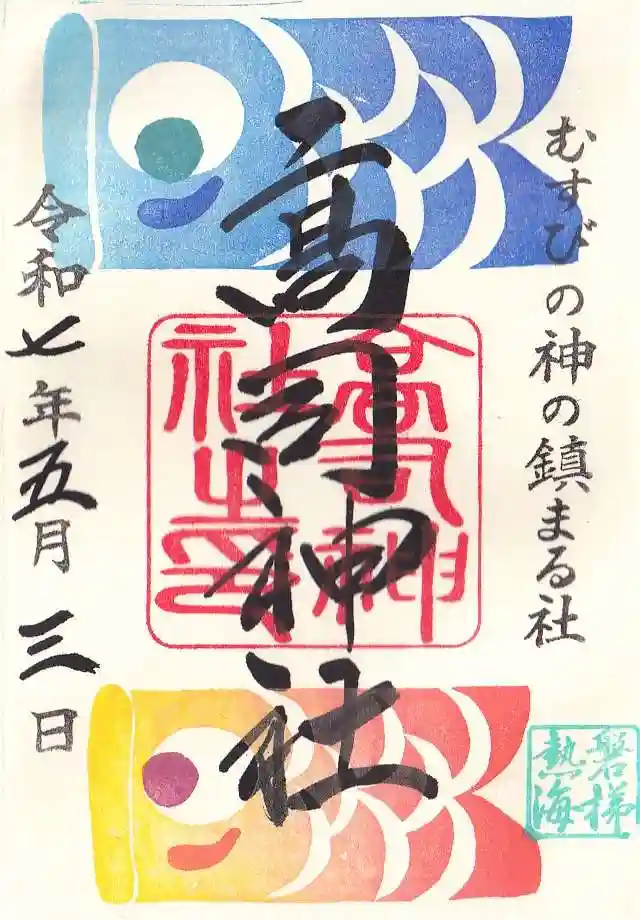 むすびの神の鎮まる社
高司神社
高司神
社之印
令和七年五月三日
磐梯
熱海